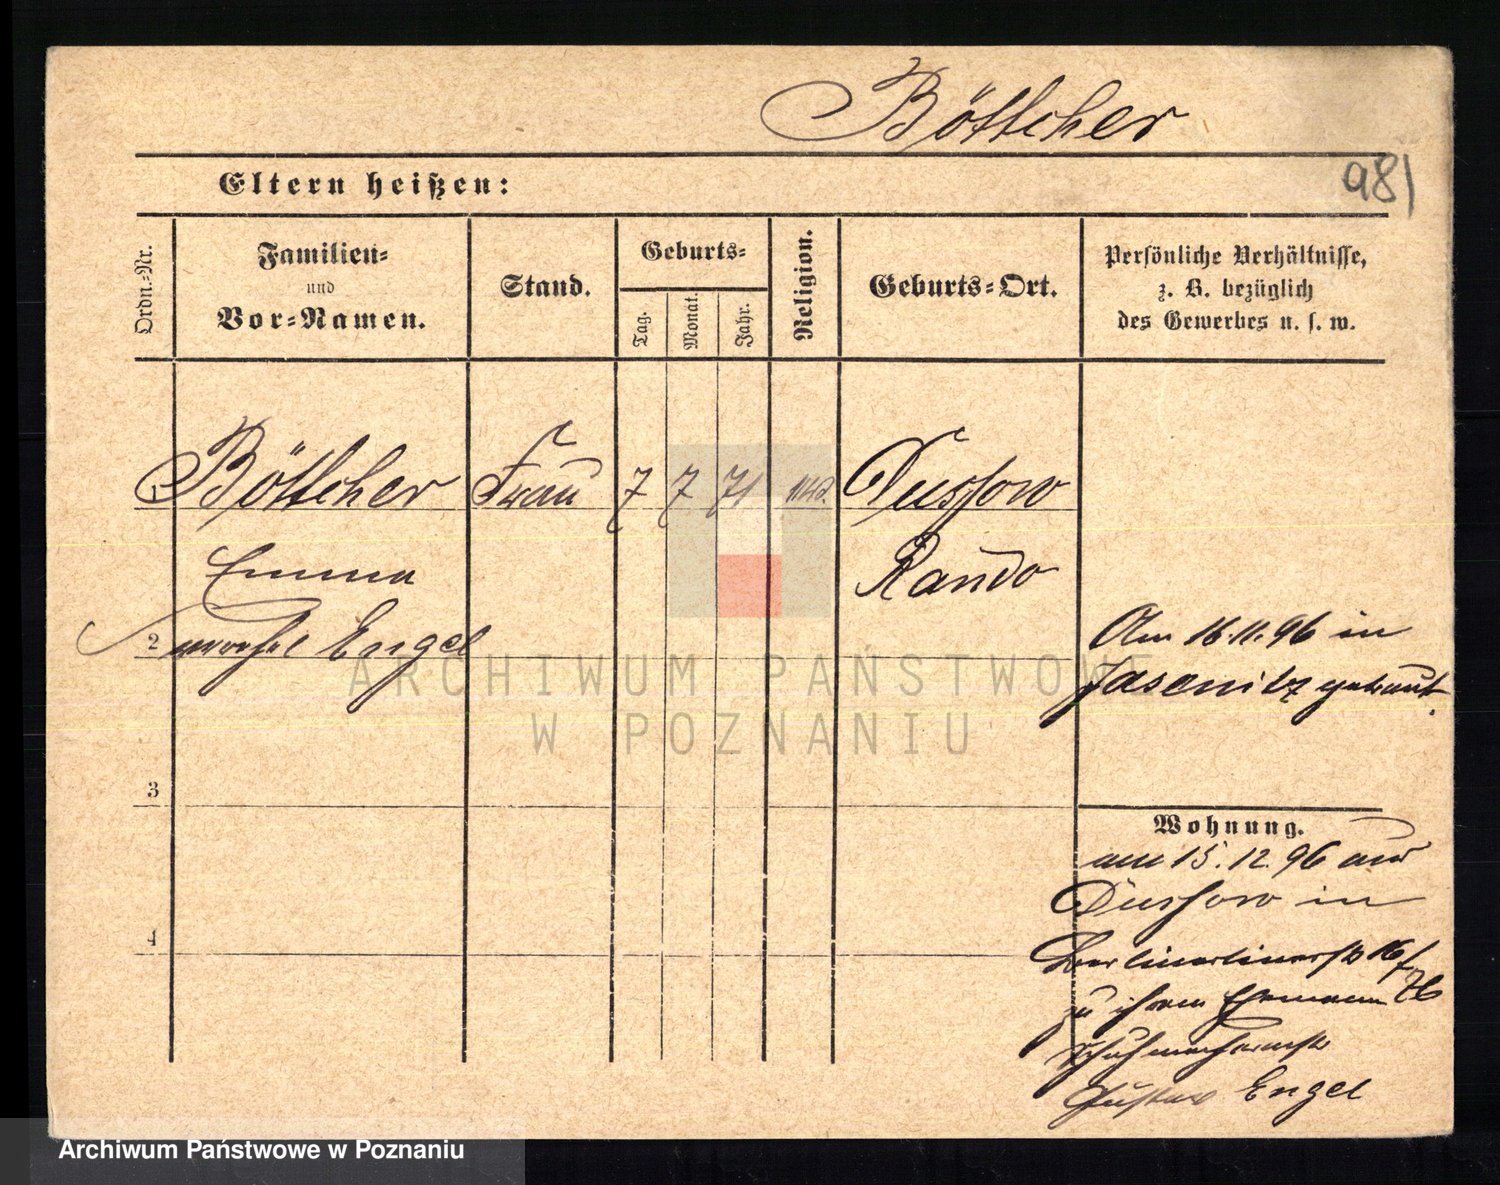 Böttcher
981
Eltern heißen:
Ordn.-Nr.
Familien-
und
Vor-Namen.
Stand.
Geburts-
Tag.
Monat.
Jahr.
Religion.
Geburts-Ort.
Persönliche Verhältnisse,
z. B. bezüglich
des Gewerbes u. s. w.
1 Böttcher Frau 7 7 71 Düssow
Emma Rando
2 Engel
Am 16.11.96 in
Jasenitz getraut.
3
Wohnung.
am 15.12.96 aus
Düssow in
4
16/
zu ihrem Ehemann
Schuhmacher
Gustav Engel
ARCHIWUM PAŃSTWOWE
W POZNANIU
Archiwum Państwowe w Poznaniu